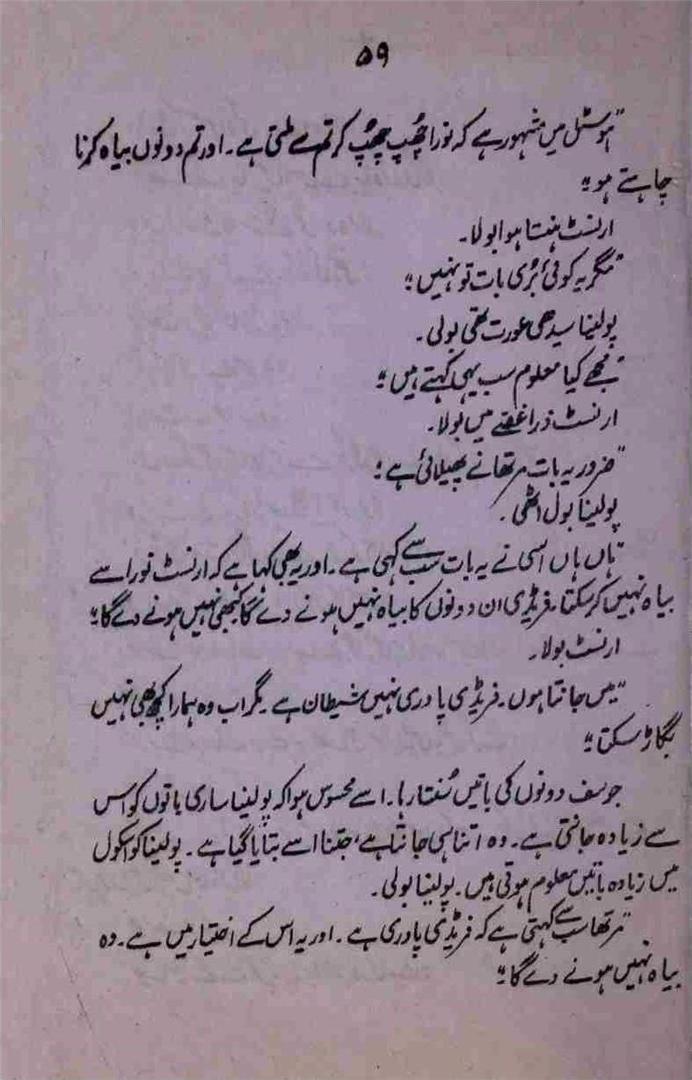 ۵۹
"ہوسٹل میں مشہور ہے کہ نورا چُھپ چُھپ کر تم سے ملتی ہے۔ اور تم دونوں بیاہ کرنا
چاہتے ہو"
ارنسٹ ہنستا ہوا بولا۔
"مگر یہ کوئی بُری بات تو نہیں"
پولینا سیدھی عورت تھی بولی۔
"مجھے کیا معلوم سب یہی کہتے ہیں"
ارنسٹ ذرا غصّے میں بولا۔
"ضرور یہ بات مرتھا نے پھیلائی ہے"
پولینا بول اٹھی۔
"ہاں ہاں اسی نے یہ بات سب سے کہی ہے۔ اور یہ بھی کہا ہے کہ ارنسٹ نورا سے
بیاہ نہیں کر سکتا، فریڈی ان دونوں کا بیاہ نہیں ہونے دے گا کبھی نہیں ہونے دے گا"
ارنسٹ بولا۔
"میں جانتا ہوں۔ فریڈی پادری نہیں شیطان ہے۔ مگر اب وہ ہمارا کچھ بھی نہیں
بگاڑ سکتا"
جوسف دونوں کی باتیں سُنتا رہا۔ اسے محسوس ہوا کہ پولینا ساری باتوں کو اس
سے زیادہ جانتی ہے۔ وہ اتنا ہی جانتا ہے، جتنا اسے بتایا گیا ہے۔ پولینا کو اسکول
میں زیادہ باتیں معلوم ہوتی ہیں۔ پولینا بولی۔
"مرتھا سب سے کہتی ہے کہ فریڈی پادری ہے۔ اور یہ اس کے اختیار میں ہے۔ وہ
بیاہ نہیں ہونے دے گا"